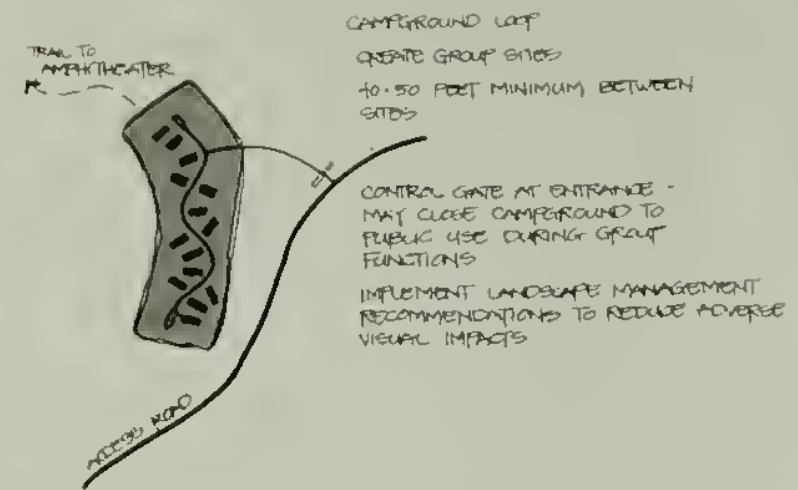 TRAIL TO
AMPHITHEATER
CAMPGROUND LOOP
CREATE GROUP SITES
40-50 FEET MINIMUM BETWEEN
SITES
CONTROL GATE AT ENTRANCE -
MAY CLOSE CAMPGROUND TO
PUBLIC USE DURING GROUP
FUNCTIONS
IMPLEMENT LANDSCAPE MANAGEMENT
RECOMMENDATIONS TO REDUCE ADVERSE
VISUAL IMPACTS
ACCESS ROAD